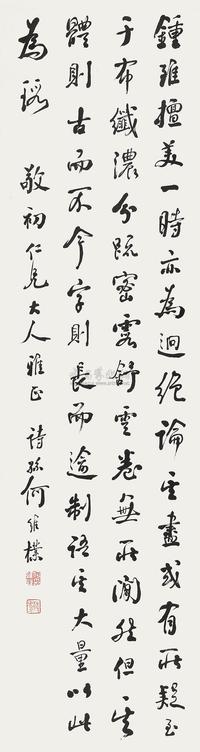 鍾雖擅美一時亦為迥絕論其盡或有所疑至
于布纖濃分疏密霧舒雲卷無所間然但其
體則古而不今字則長而逾制語其大量以此
為瑕
敬初仁兄大人雅正 詩孫何維樸